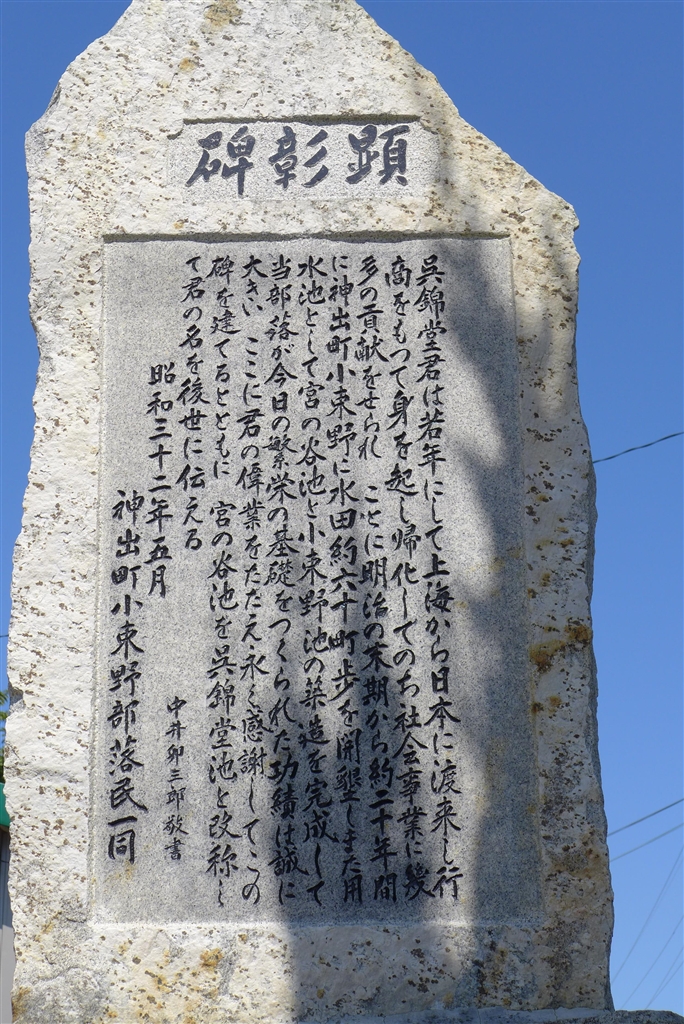 顕彰碑
呉錦堂君は若年にして上海から日本に渡来し行
商をもつて身を起し帰化してのち社会事業に幾
多の貢献をせられ　ことに明治の末期から約二十年間
に神出町小束野に水田約六十町歩を開墾しまた用
水池として宮の谷池と小束野池の築造を完成して
当部落が今日の繁栄の基礎をつくられた功績は誠に
大きい　ここに君の偉業をたたえ永く感謝してこの
碑を建てるとともに　宮の谷池を呉錦堂池と改称し
て君の名を後世に伝える
昭和三十二年五月
中井卯三郎敬書
神出町小束野部落民一同